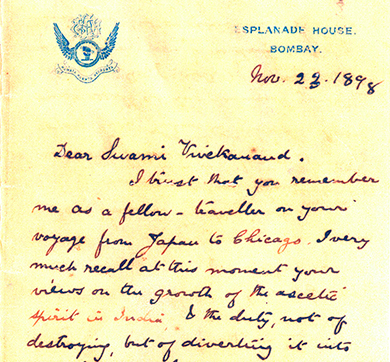 ESPLANADE HOUSE.
BOMBAY.
Nov. 23. 1898
Dear Swami Vivekanand.
I trust that you remember
me as a fellow-traveller on your
voyage from Japan to Chicago. I very
much recall at this moment your
views on the growth of the ascetic
spirit in India & the duty, not of
destroying, but of diverting it into